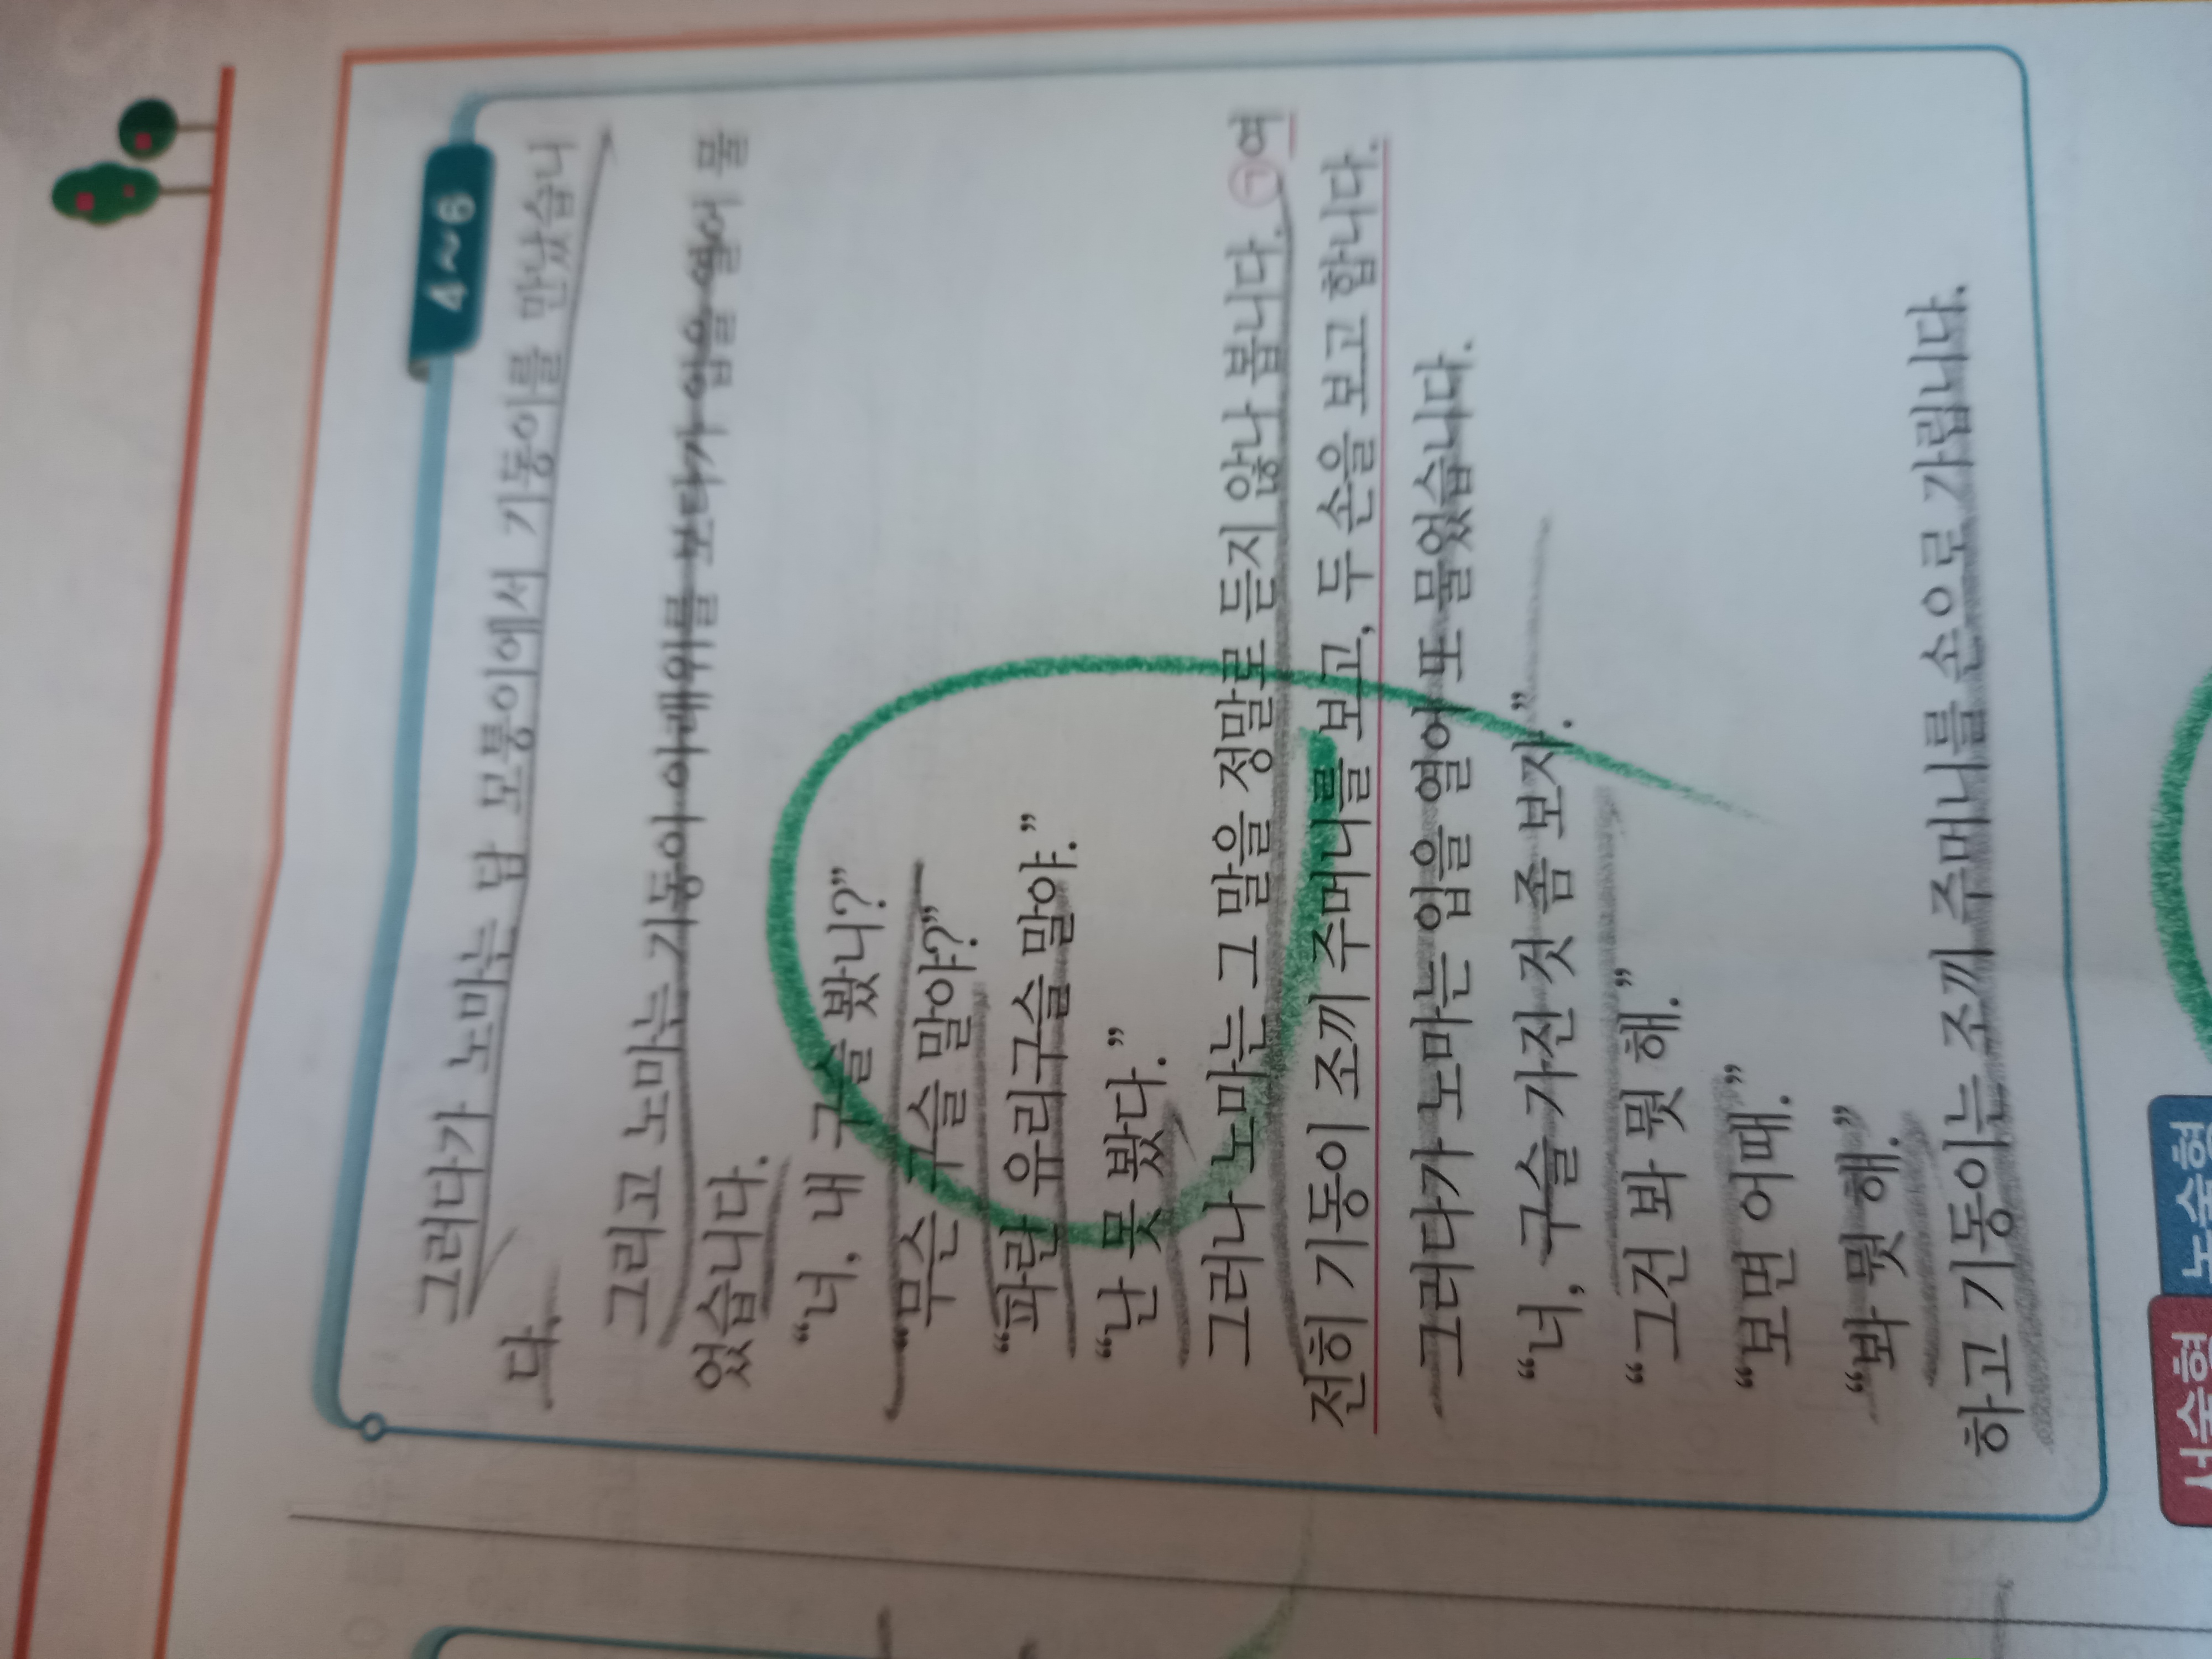 4~6
그러다가 노마는 담 모퉁이에서 기동이를 만났습니
다.
그리고 노마는 기동이 아래위를 보다가 입을 열어 물
었습니다.
“너, 내 구슬 봤니?”
“무슨 구슬 말야?”
“파란 유리구슬 말야.”
“난 못 봤다.”
그러나 노마는 그 말을 정말로 듣지 않나 봅니다. ㉠여
전히 기동이 조끼 주머니를 보고, 두 손을 보고 합니다.
그러다가 노마는 입을 열어 또 물었습니다.
“너, 구슬 가진 것 좀 보자.”
“그건 봐 뭣 해.”
“보면 어때.”
“봐 뭣 해.”
하고 기동이는 조끼 주머니를 손으로 가립니다.
서술형 논술형